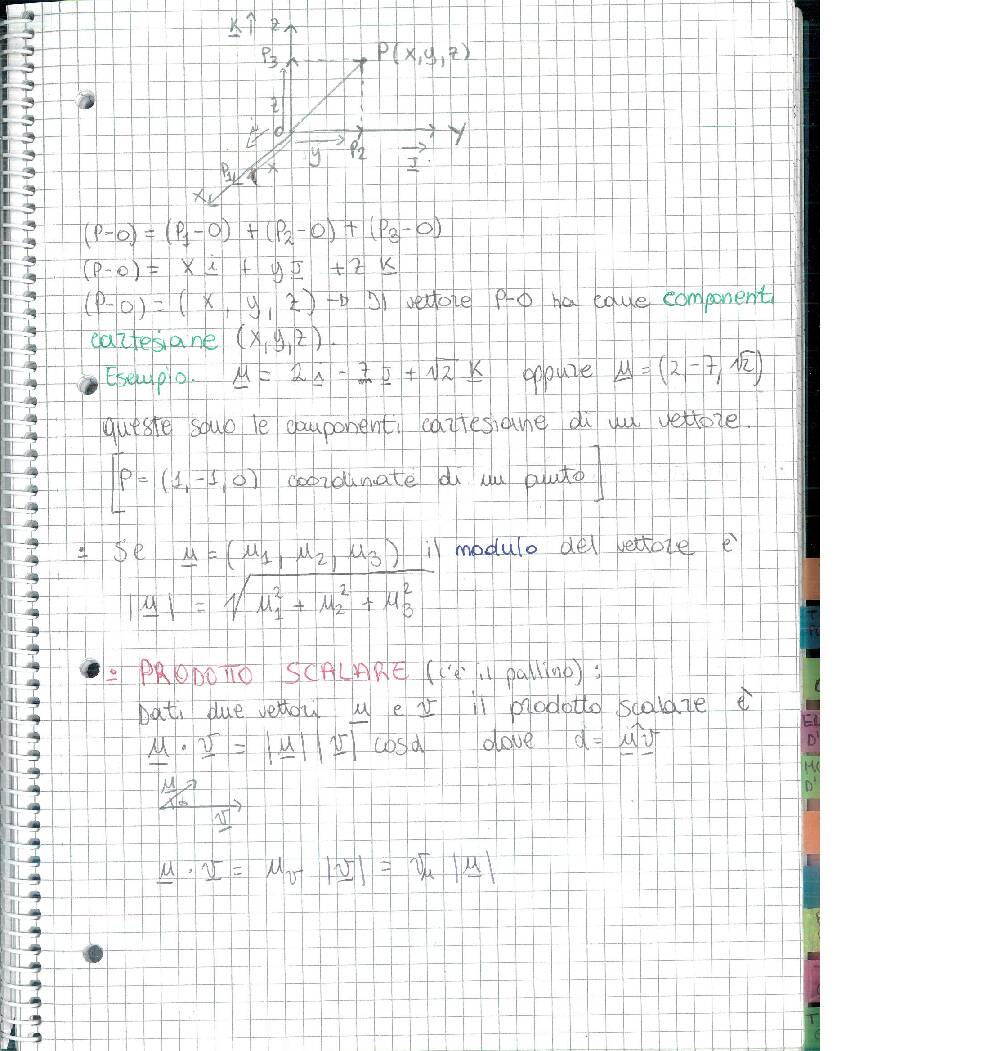 K ↑ z
P3 P(x,y,z)
z
O Y
y P2 J
P1 x
x
(P-O) = (P1-O) + (P2-O) + (P3-O)
(P-O) = x i + y J + z K
(P-O) = ( x, y, z) → Il vettore P-O ha come componenti
cartesiane (x,y,z).
Esempio. u = 2i - 7J + √2 K oppure u = (2,-7,√2)
queste sono le componenti cartesiane di un vettore.
[P = (1,-1,0) coordinate di un punto]
: Se u = (u1, u2, u3) il modulo del vettore è
|u| = √u1² + u2² + u3²
: PRODOTTO SCALARE (c'è il pallino) :
Dati due vettori u e v il prodotto scalare è
u · v = |u| |v| cosα dove α = uv̂
u
α
v
u · v = uv |v| = vu |u|